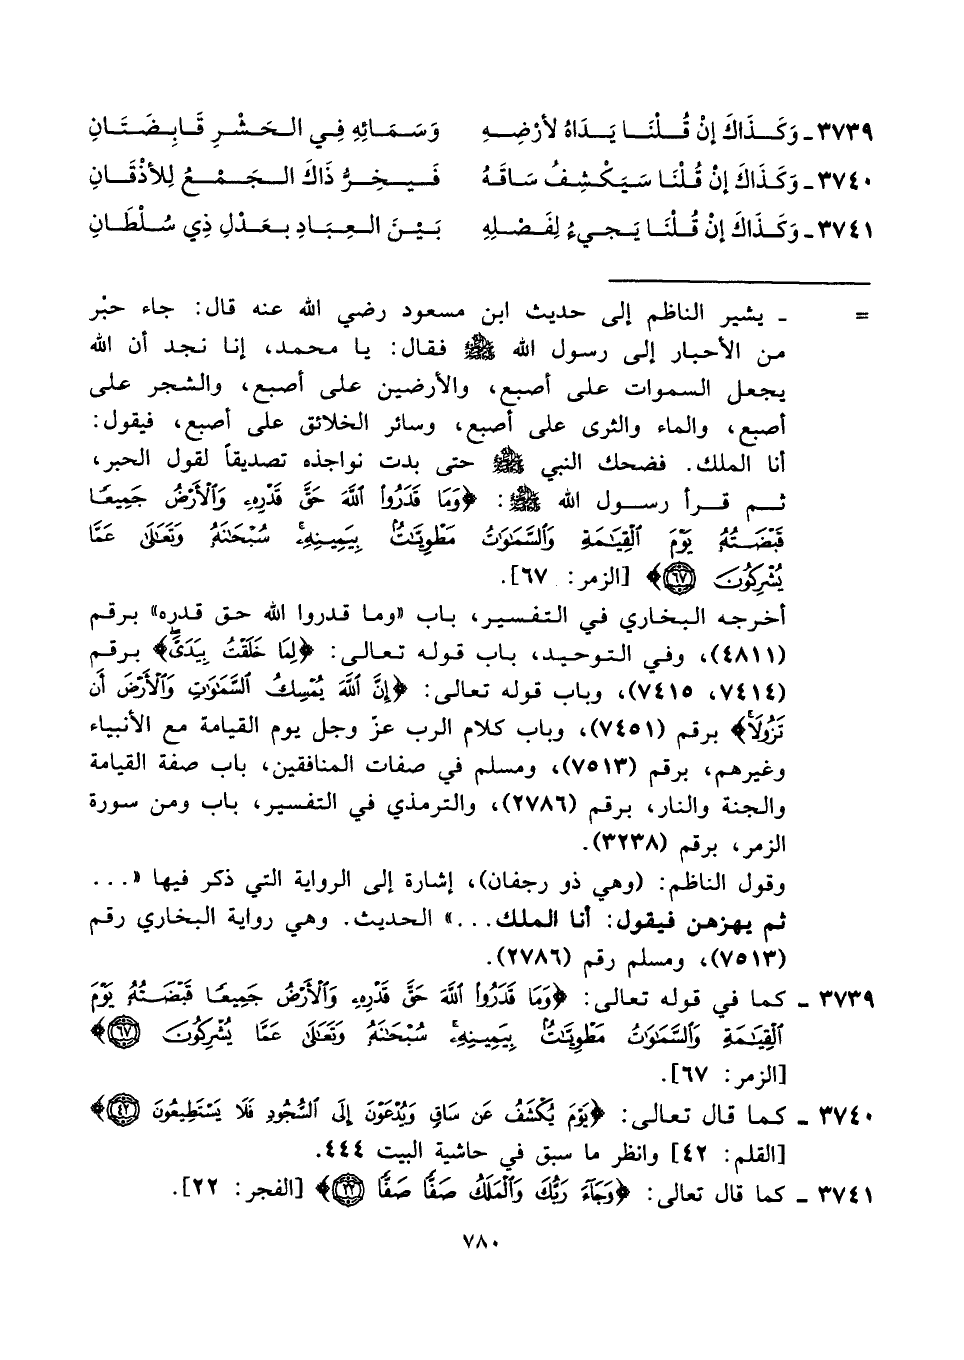 ٣٧٣٩ - وَكَذَاكَ إنْ قُلْنَا يَدَاهُ لأرْضِهِ وَسَمَائِهِ فِي الحَشْرِ قَابِضَتَانِ
٣٧٤٠ - وَكَذَاكَ إنْ قُلْنَا سَيَكْشِفُ سَاقَهُ فَيَخِرُّ ذَاكَ الجَمْعُ لِلأذْقَانِ
٣٧٤١ - وَكَذَاكَ إنْ قُلْنَا يَجِيءُ لِفَصْلِهِ بَيْنَ العِبَادِ بعَدْلِ ذِي سُلْطَانِ
= - يشير الناظم إلى حديث ابن مسعود رضي الله عنه قال: جاء حبْر
من الأحبار إلى رسول الله ﷺ فقال: يا محمد، إنا نجد أن الله
يجعل السموات على أصبع، والأرضين على أصبع، والشجر على
أصبع، والماء والثرى على أصبع، وسائر الخلائق على أصبع، فيقول:
أنا الملك. فضحك النبي ﷺ حتى بدت نواجذه تصديقاً لقول الحبر،
ثم قرأ رسول الله ﷺ: ﴿وَمَا قَدَرُوا اللَّهَ حَقَّ قَدْرِهِ وَالْأَرْضُ جَمِيعًا
قَبْضَتُهُ يَوْمَ الْقِيَامَةِ وَالسَّمَاوَاتُ مَطْوِيَّاتٌ بِيَمِينِهِ سُبْحَانَهُ وَتَعَالَى عَمَّا
يُشْرِكُونَ ٦٧﴾ [الزمر: ٦٧].
أخرجه البخاري في التفسير، باب «وما قدروا الله حق قدره» برقم
(٤٨١١)، وفي التوحيد، باب قوله تعالى: ﴿لِمَا خَلَقْتُ بِيَدَيَّ﴾ برقم
(٧٤١٤، ٧٤١٥)، وباب قوله تعالى: ﴿إِنَّ اللَّهَ يُمْسِكُ السَّمَاوَاتِ وَالْأَرْضَ أَن
تَزُولَا﴾ برقم (٧٤٥١)، وباب كلام الرب عزّ وجل يوم القيامة مع الأنبياء
وغيرهم، برقم (٧٥١٣)، ومسلم في صفات المنافقين، باب صفة القيامة
والجنة والنار، برقم (٢٧٨٦)، والترمذي في التفسير، باب ومن سورة
الزمر، برقم (٣٢٣٨).
وقول الناظم: (وهي ذو رجفان)، إشارة إلى الرواية التي ذكر فيها «...
ثم يهزهن فيقول: أنا الملك...» الحديث. وهي رواية البخاري رقم
(٧٥١٣)، ومسلم رقم (٢٧٨٦).
٣٧٣٩ - كما في قوله تعالى: ﴿وَمَا قَدَرُوا اللَّهَ حَقَّ قَدْرِهِ وَالْأَرْضُ جَمِيعًا قَبْضَتُهُ يَوْمَ
الْقِيَامَةِ وَالسَّمَاوَاتُ مَطْوِيَّاتٌ بِيَمِينِهِ سُبْحَانَهُ وَتَعَالَى عَمَّا يُشْرِكُونَ ٦٧﴾
[الزمر: ٦٧].
٣٧٤٠ - كما قال تعالى: ﴿يَوْمَ يُكْشَفُ عَن سَاقٍ وَيُدْعَوْنَ إِلَى السُّجُودِ فَلَا يَسْتَطِيعُونَ ٤٢﴾
[القلم: ٤٢] وانظر ما سبق في حاشية البيت ٤٤٤.
٣٧٤١ - كما قال تعالى: ﴿وَجَاءَ رَبُّكَ وَالْمَلَكُ صَفًّا صَفًّا ٢٢﴾ [الفجر: ٢٢].
٧٨٠